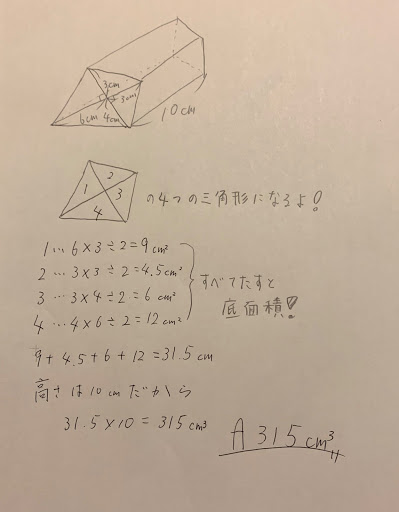 3cm
3cm
6cm 4cm
10cm
1 2 3 4
の4つの三角形になるよ!
1…6×3÷2=9cm²
2…3×3÷2=4.5cm²
3…3×4÷2=6cm²
4…4×6÷2=12cm²
すべてたすと
底面積!
9+4.5+6+12=31.5cm
高さは10cmだから
31.5×10=315cm³
A 315cm³